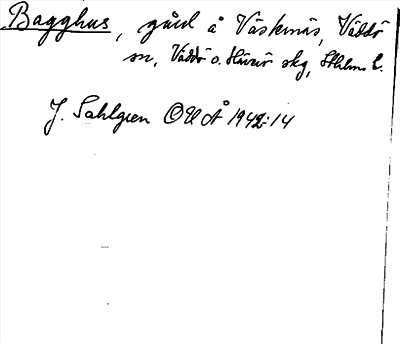 Bagghus, gård å Väskinäs, Väddö
sn, Väddö o. Häverö skg, Sthlms l.
J. Sahlgren OUÅ 1942:14